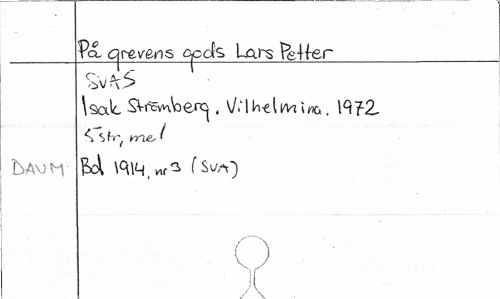 På grevens gods Lars Petter
SVAS
Isak Strömberg. Vilhelmina. 1972
5 str, mel
DAUM Bd 1914, nr 3 (SVA)